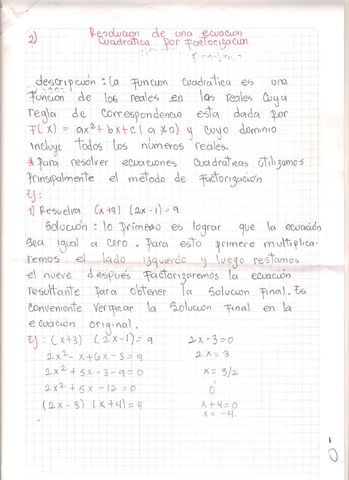 2) Resolución de una ecuación
cuadratica por Factorización
descripción: La Función cuadratica es una
Función de los reales en los Reales cuya
regla de correspondencia esta dada por
F(X) = ax²+bx+c (a≠0) y cuyo dominio
incluye todos los números reales.
* Para resolver ecuaciones cuadraticas utilizamos
Principalmente el metodo de Factorización
Ej:
1) Resuelva (x+3) (2x-1)=9
Solución: lo primero es lograr que la ecuación
sea igual a cero. Para esto primero multiplica-
remos el lado izquierdo y luego restamos
el nueve después Factorizaremos la ecuación
resultante para obtener la Solución Final. Es
conveniente verificar la Solucion Final en la
ecuación original.
Ej: (x+3) (2x-1)=9
2x²-x+6x-3=9
2x²+5x-3-9=0
2x²+5x-12=0
(2x-3) (x+4)=4
2x-3=0
2x=3
x=3/2
ó
x+4=0
x=-4.